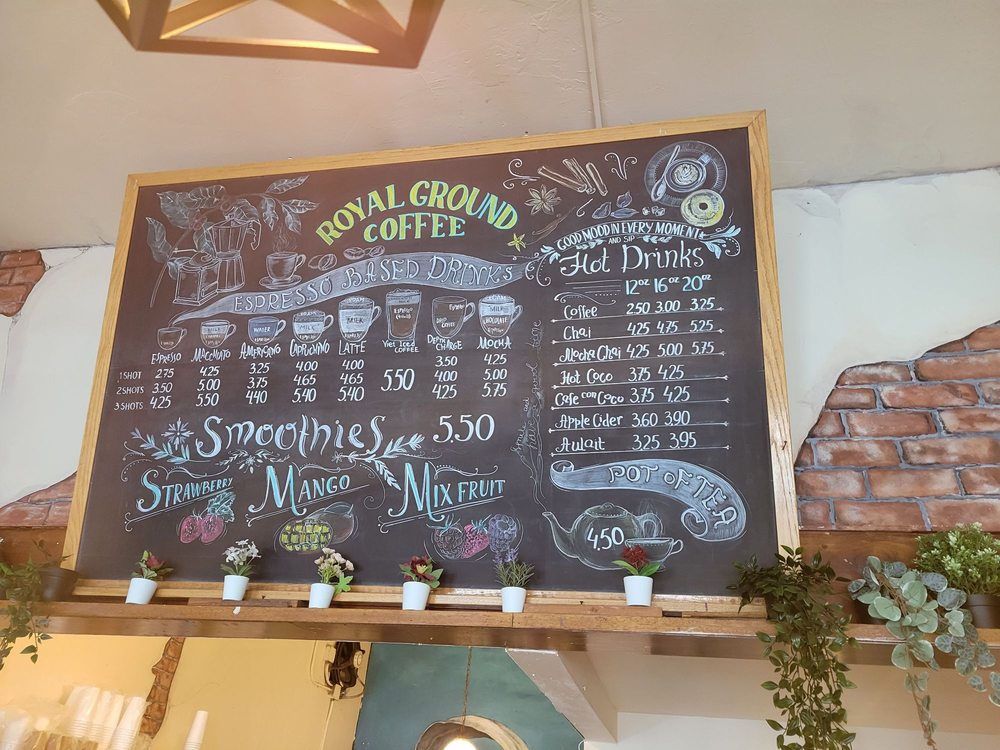 ROYAL GROUND
COFFEE
ESPRESSO BASED DRINKS
ESPRESSO MACCHIATO AMERICANO CAPPUCINO LATTE Viet Iced COFFEE DEPTH CHARGE MOCHA
1 SHOT 2.75 4.25 3.25 4.00 4.00 3.50 4.25
2 SHOTS 3.50 5.00 3.75 4.65 4.65 5.50 4.00 5.00
3 SHOTS 4.25 5.50 4.40 5.40 5.40 4.25 5.75
Smoothies 5.50
STRAWBERRY MANGO MIX FRUIT
GOOD MOOD IN EVERY MOMENT
AND SIP
Hot Drinks
12oz 16oz 20oz
Coffee 2.50 3.00 3.25
Chai 4.25 4.75 5.25
Mocha Chai 4.25 5.00 5.75
Hot Coco 3.75 4.25
Cafe con Coco 3.75 4.25
Apple Cider 3.60 3.90
Aulait 3.25 3.95
POT OF TEA
4.50